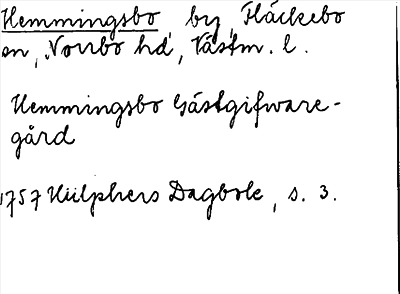 Hemmingsbo, by, Fläckebo
sn, Norrbo hd, Västm. l.
Hemmingsbo Gästgifware-
gård
1757 Hülphers Dagbok, s. 3.